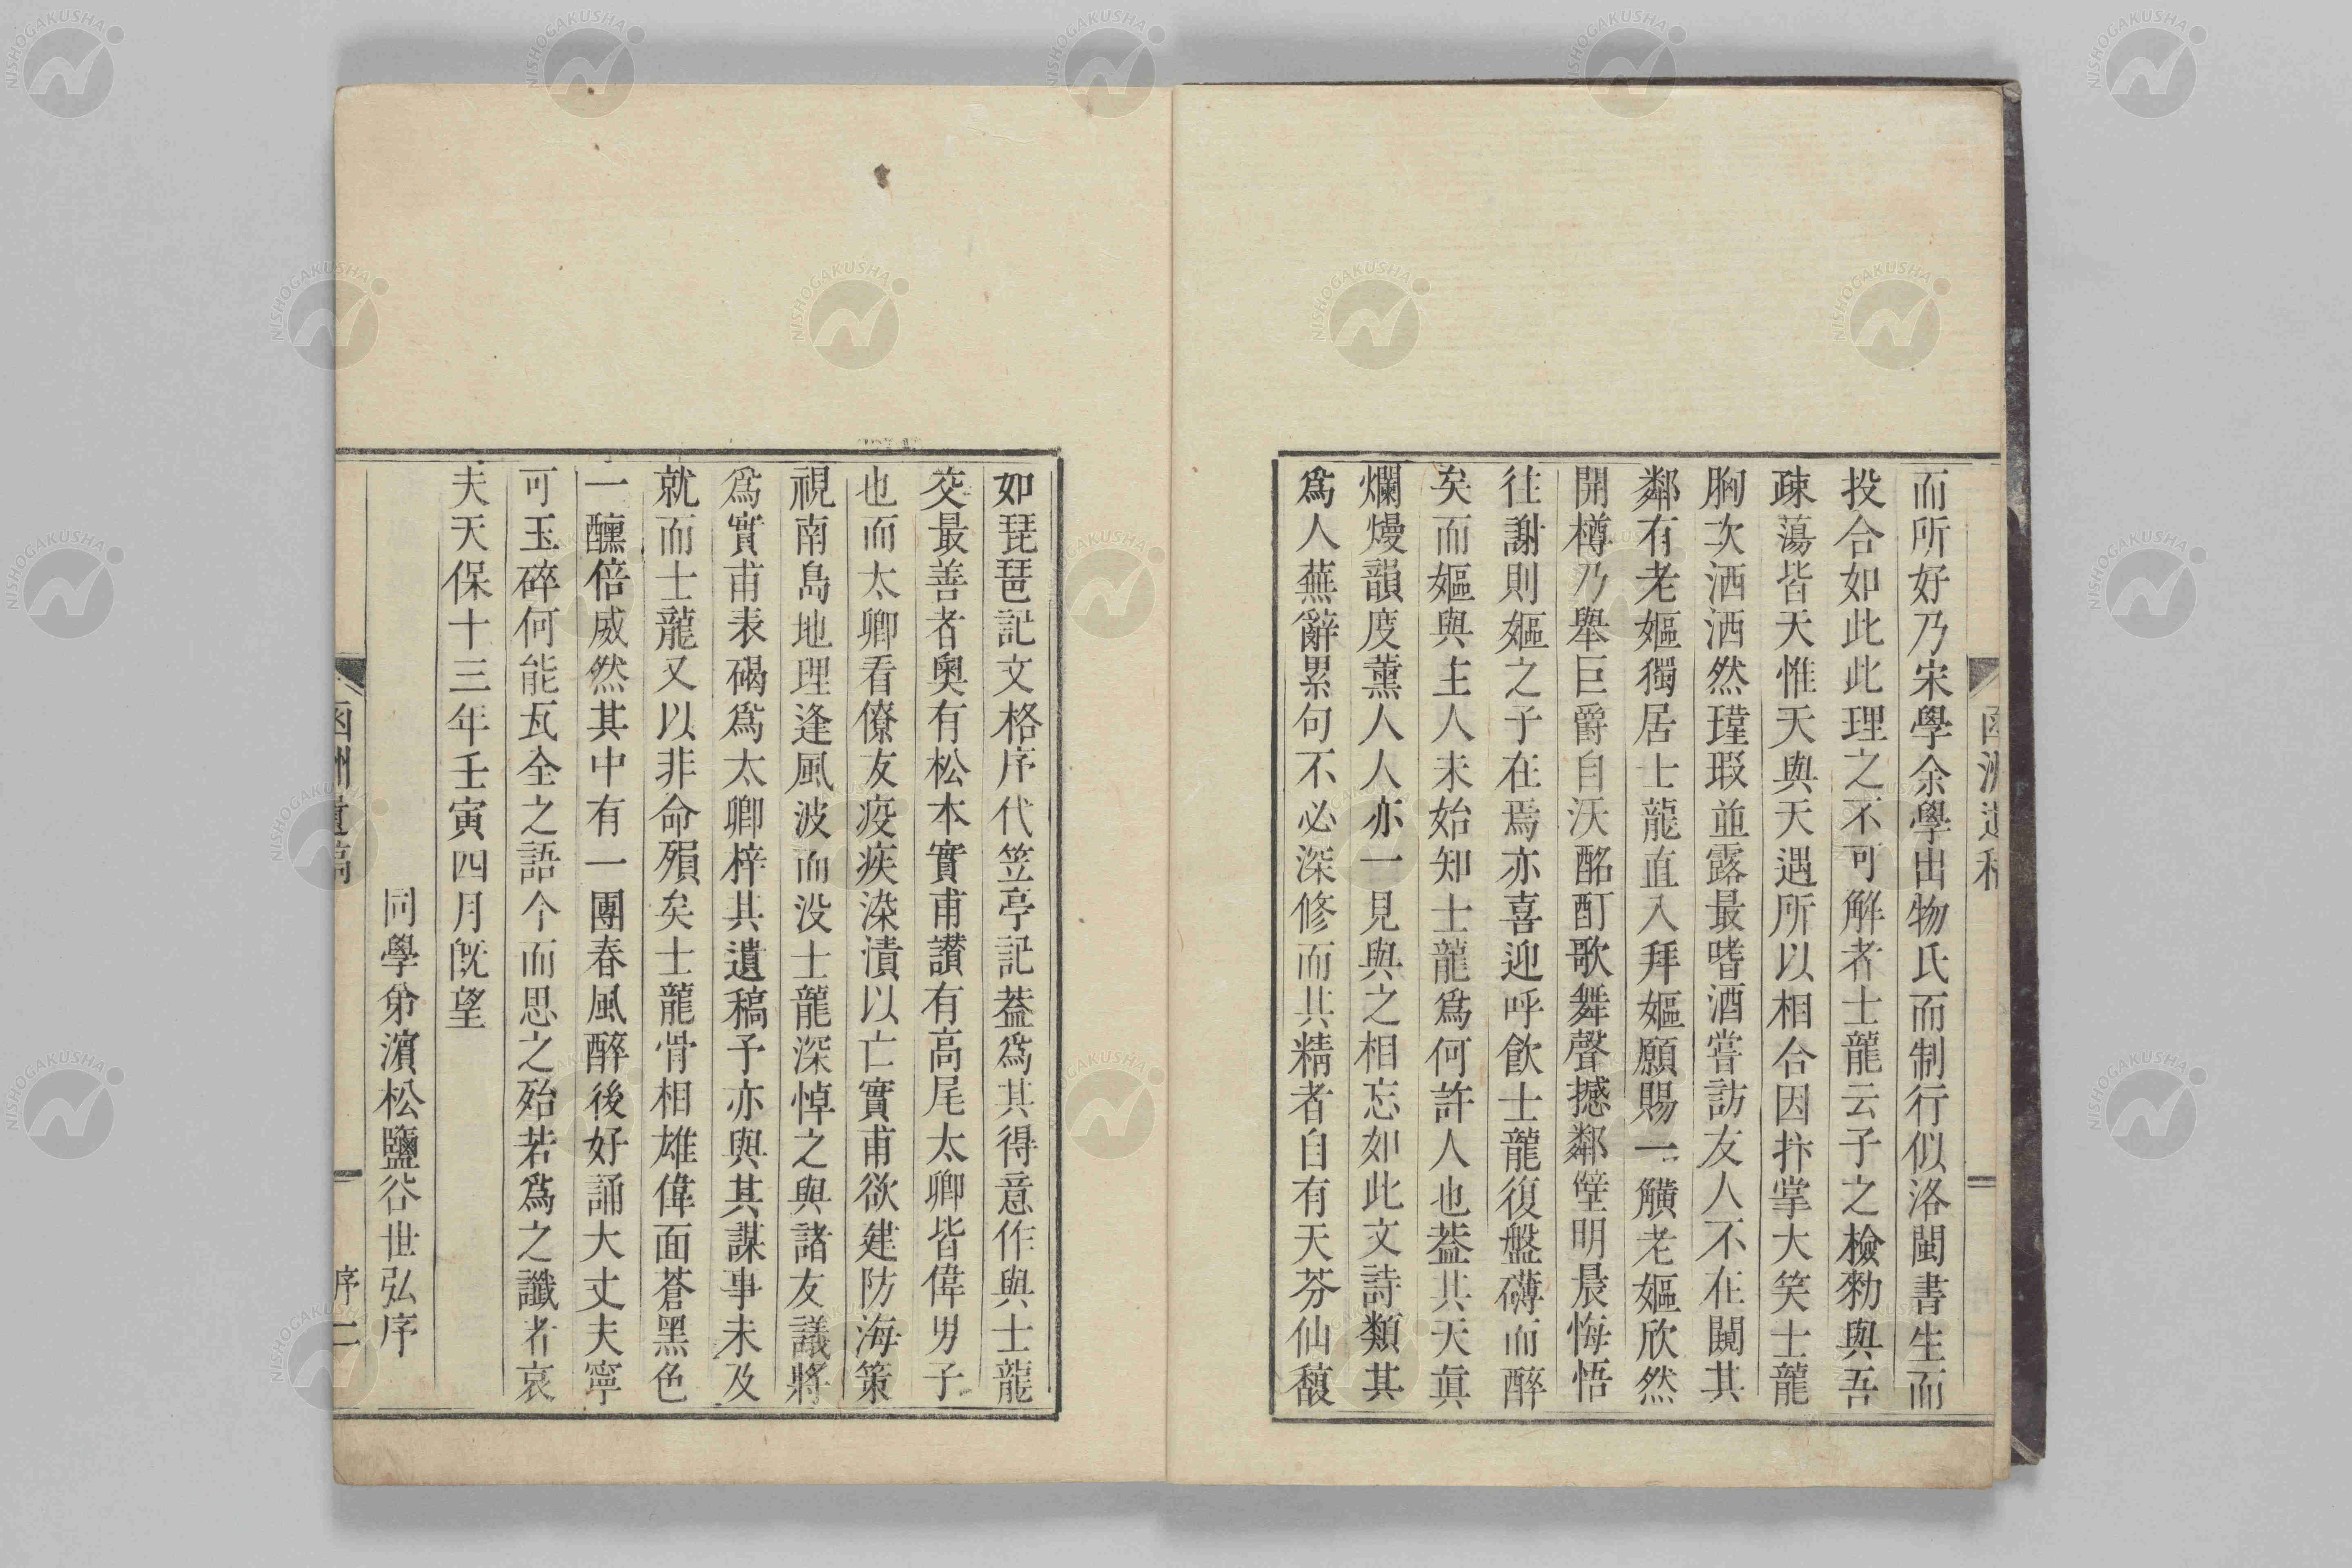 而所好乃宋學余學出物氏而制行似洛閩書生而
投合如此此理之不可解者士龍云子之檢勑與吾
疎蕩皆天惟天與天遇所以相合因抃掌大笑士龍
胸次洒洒然瑾瑕並露最嗜酒嘗訪友人不在闚其
鄰有老嫗獨居士龍直入拜嫗願賜一觵老嫗欣然
開樽乃舉巨爵自沃酩酊歌舞聲撼鄰壁明晨悔悟
往謝則嫗之子在焉亦喜迎呼飲士龍復盤礴而醉
矣而嫗與主人未始知士龍爲何許人也葢其天眞
爛熳韻度薰人人亦一見與之相忘如此文詩類其
爲人蕪辭累句不必深修而其精者自有天芬仙馥
如琵琶記文格序代笠亭記葢爲其得意作與士龍
交最善者奧有松本實甫讃有高尾太卿皆偉男子
也而太卿看僚友疫疾染漬以亡實甫欲建防海策
視南島地理逢風波而没士龍深悼之與諸友議將
爲實甫表碣爲太卿梓其遺稿予亦與其謀事未及
就而士龍又以非命殞矣士龍骨相雄偉面蒼黑色
一醺倍威然其中有一團春風醉後好誦大丈夫寧
可玉碎何能瓦全之語今而思之殆若爲之讖者哀
夫天保十三年壬寅四月旣望
同學弟濵松鹽谷世弘序
函洲遺稿
序二
NISHOGAKUSHA